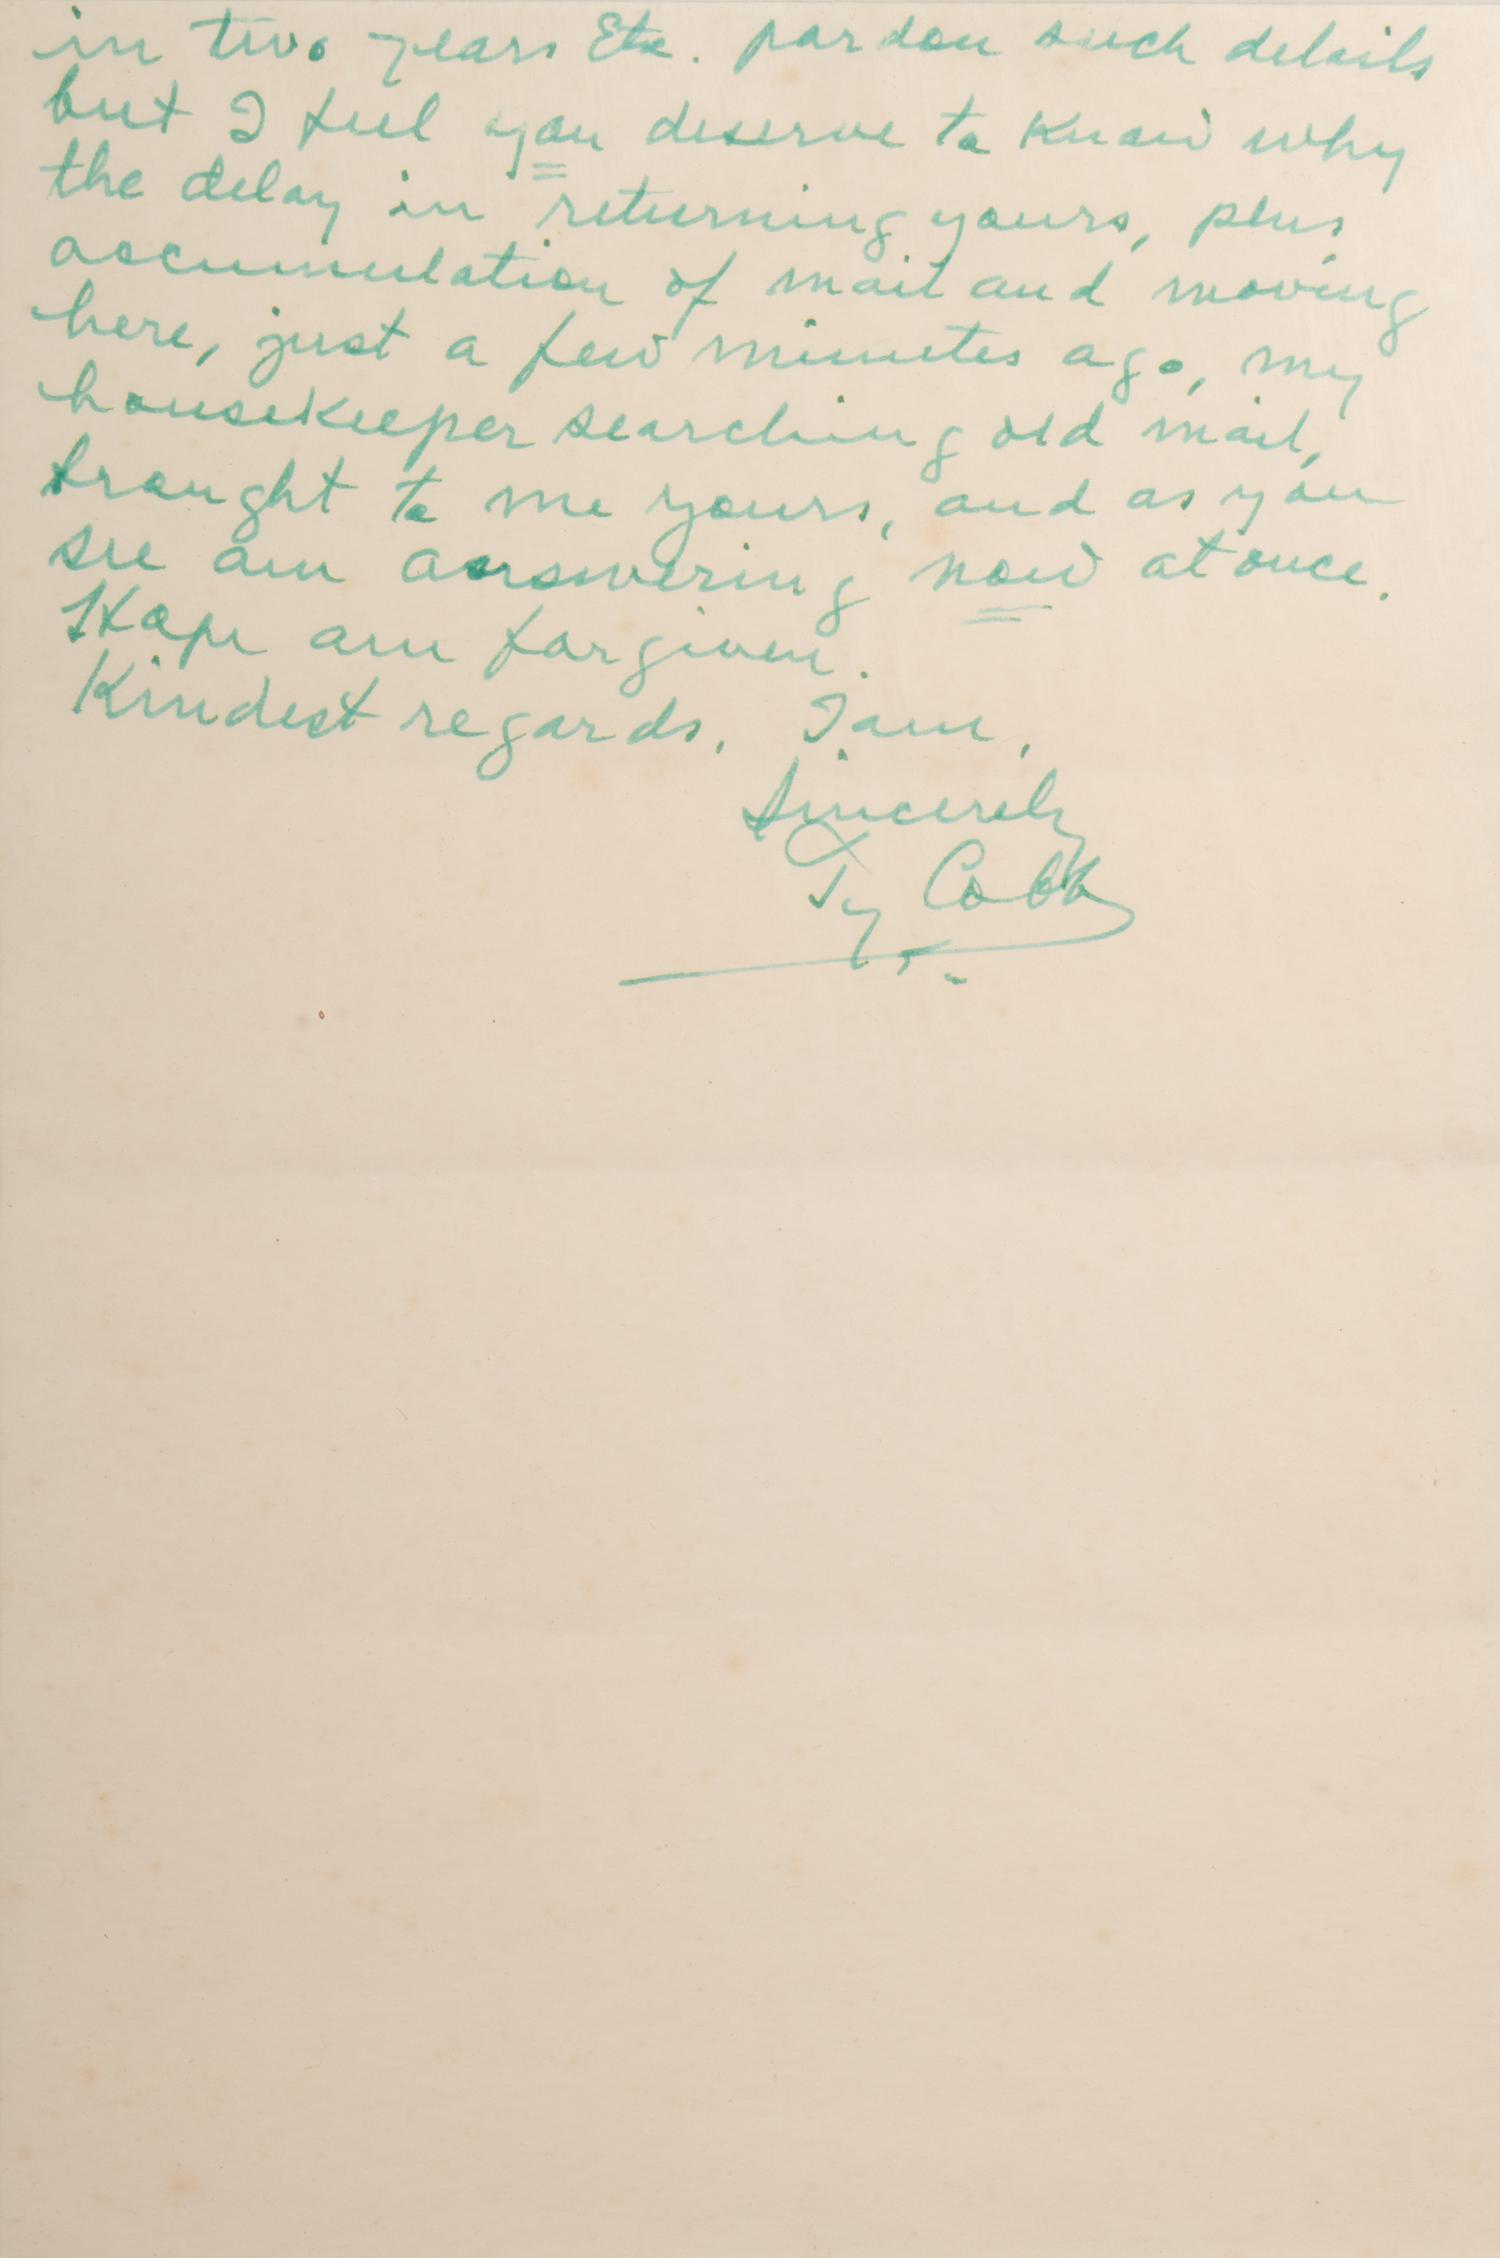 in two years Etc. pardon such details
but I feel you deserve to know why
the delay in returning yours, plus
accumulation of mail and moving
here, just a few minutes ago, my
housekeeper searching old mail,
brought to me yours, and as you
see am answering now at once.
Hope am forgiven.
Kindest regards, I am,
Sincerely
Ty Cobb